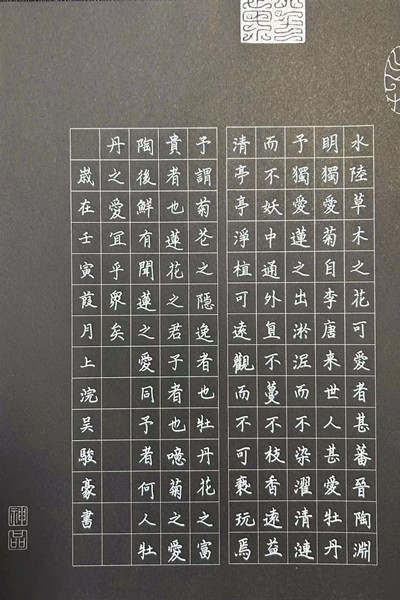 水陸草木之花可愛者甚蕃晉陶淵
明獨愛菊自李唐来世人甚愛牡丹
予獨愛蓮之出淤泥而不染濯清漣
而不妖中通外直不蔓不枝香遠益
清亭亭淨植可遠觀而不可褻玩焉
予謂菊花之隱逸者也牡丹花之富
貴者也蓮花之君子者也噫菊之愛
陶後鮮有聞蓮之愛同予者何人牡
丹之愛宜乎衆矣
歲在壬寅葭月上浣吴駿豪書
神品